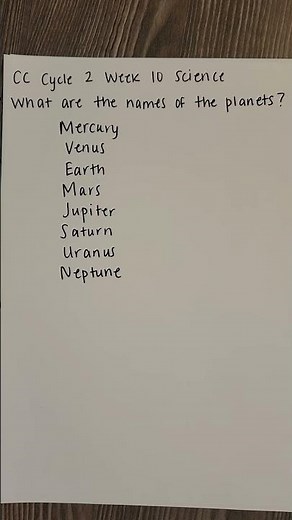 CC Cycle 2 Week 10 Science
What are the names of the planets?
Mercury
Venus
Earth
Mars
Jupiter
Saturn
Uranus
Neptune